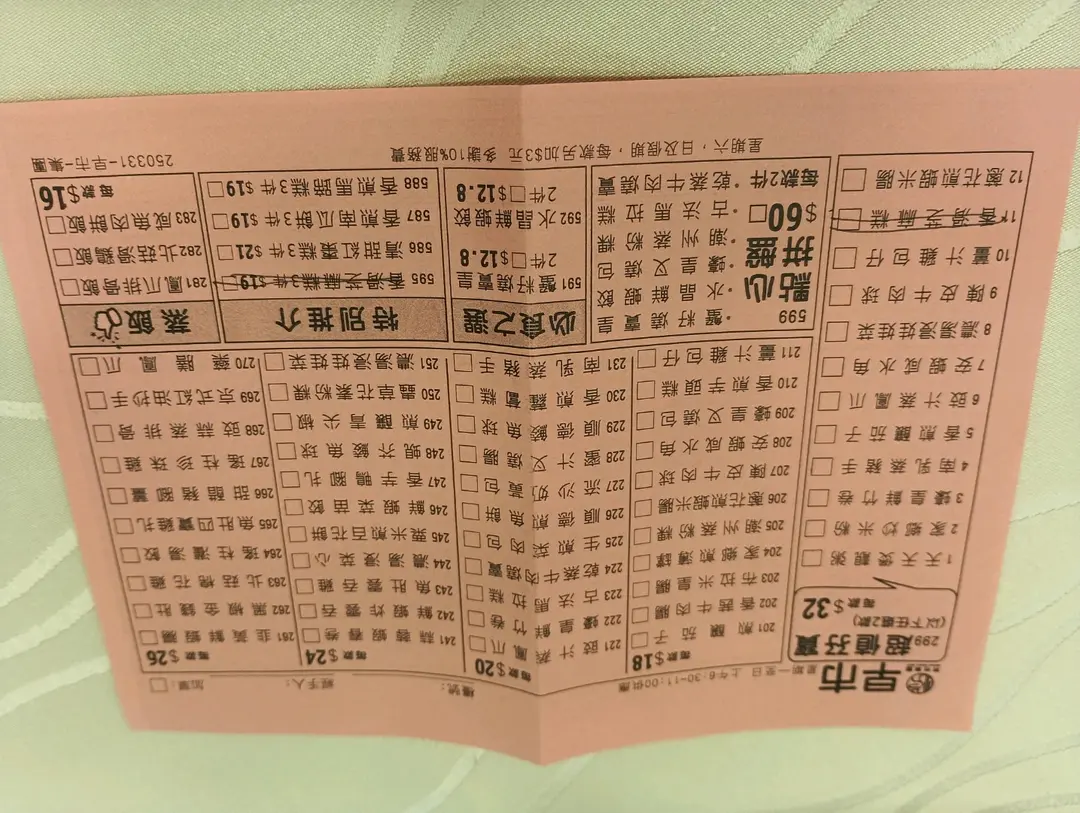 早市 星期一至日 上午6:30-11:00供應 檯號： 經手人： 加單：
299 超值孖寶
(以下任選2款)
每款$32
1 天天煲靚粥
2 家鄉炒米粉
3 蠔皇鮮竹卷
4 南乳蒸豬手
5 香煎釀茄子
6 豉汁蒸鳳爪
7 安蝦咸水角
8 濃湯浸娃娃菜
9 陳皮牛肉球
10 薑汁雞包仔
11 香滑芝麻糕
12 蔥花煎蝦米腸
每款$18
201 煎釀茄子
202 香茜牛肉腸
203 布拉米皇腸
204 家鄉煎薄罉
205 潮州蒸粉粿
206 蔥花煎蝦米腸
207 陳皮牛肉球
208 安蝦咸水角
209 蠔皇叉燒包
210 香煎芋頭糕
211 薑汁雞包仔
每款$20
221 豉汁蒸鳳爪
222 蠔皇鮮竹卷
223 古法馬拉糕
224 乾蒸牛肉燒賣
225 生煎菜肉包
226 順德煎魚餅
227 流沙奶黃包
228 蜜汁叉燒腸
229 順德鯪魚球
230 香煎蘿蔔糕
231 南乳蒸豬手
每款$24
241 蒜蓉蝦春卷
242 鮮蝦炸雲吞
243 魚肚雲吞雞
244 濃湯浸菜心
245 粟米煎百花餅
246 鮮蝦菜苗餃
247 香芋鴨腳扎
248 蜆芥鯪魚球
249 煎釀青尖椒
250 蟲草花素粉粿
251 濃湯浸娃娃菜
每款$26
261 韭黃鮮蝦腸
262 黑椒金錢肚
263 北菇棉花雞
264 瑤柱灌湯餃
265 魚肚四寶雞扎
266 甜醋豬腳薑
267 瑤柱珍珠雞
268 豉蒜蒸排骨
269 京式紅油抄手
270 藥膳鳳爪
599
點心
拼盤
$60
每款2件
•蟹籽燒賣皇
•水晶鮮蝦餃
•蠔皇叉燒包
•潮州蒸粉粿
•古法馬拉糕
•乾蒸牛肉燒賣
必食之選
591 蟹籽燒賣皇
2件 $12.8
592 水晶鮮蝦餃
2件 $12.8
特別推介
595 香滑芝麻糕3件 $19
586 清甜紅棗糕3件 $21
587 香煎南瓜餅3件 $19
588 香煎馬蹄糕3件 $19
蒸飯
281 鳳爪排骨飯
282 北菇滑雞飯
283 咸魚肉餅飯
每款$16
星期六，日及假期，每款另加$3元 多謝10%服務費
250331-早市-集團